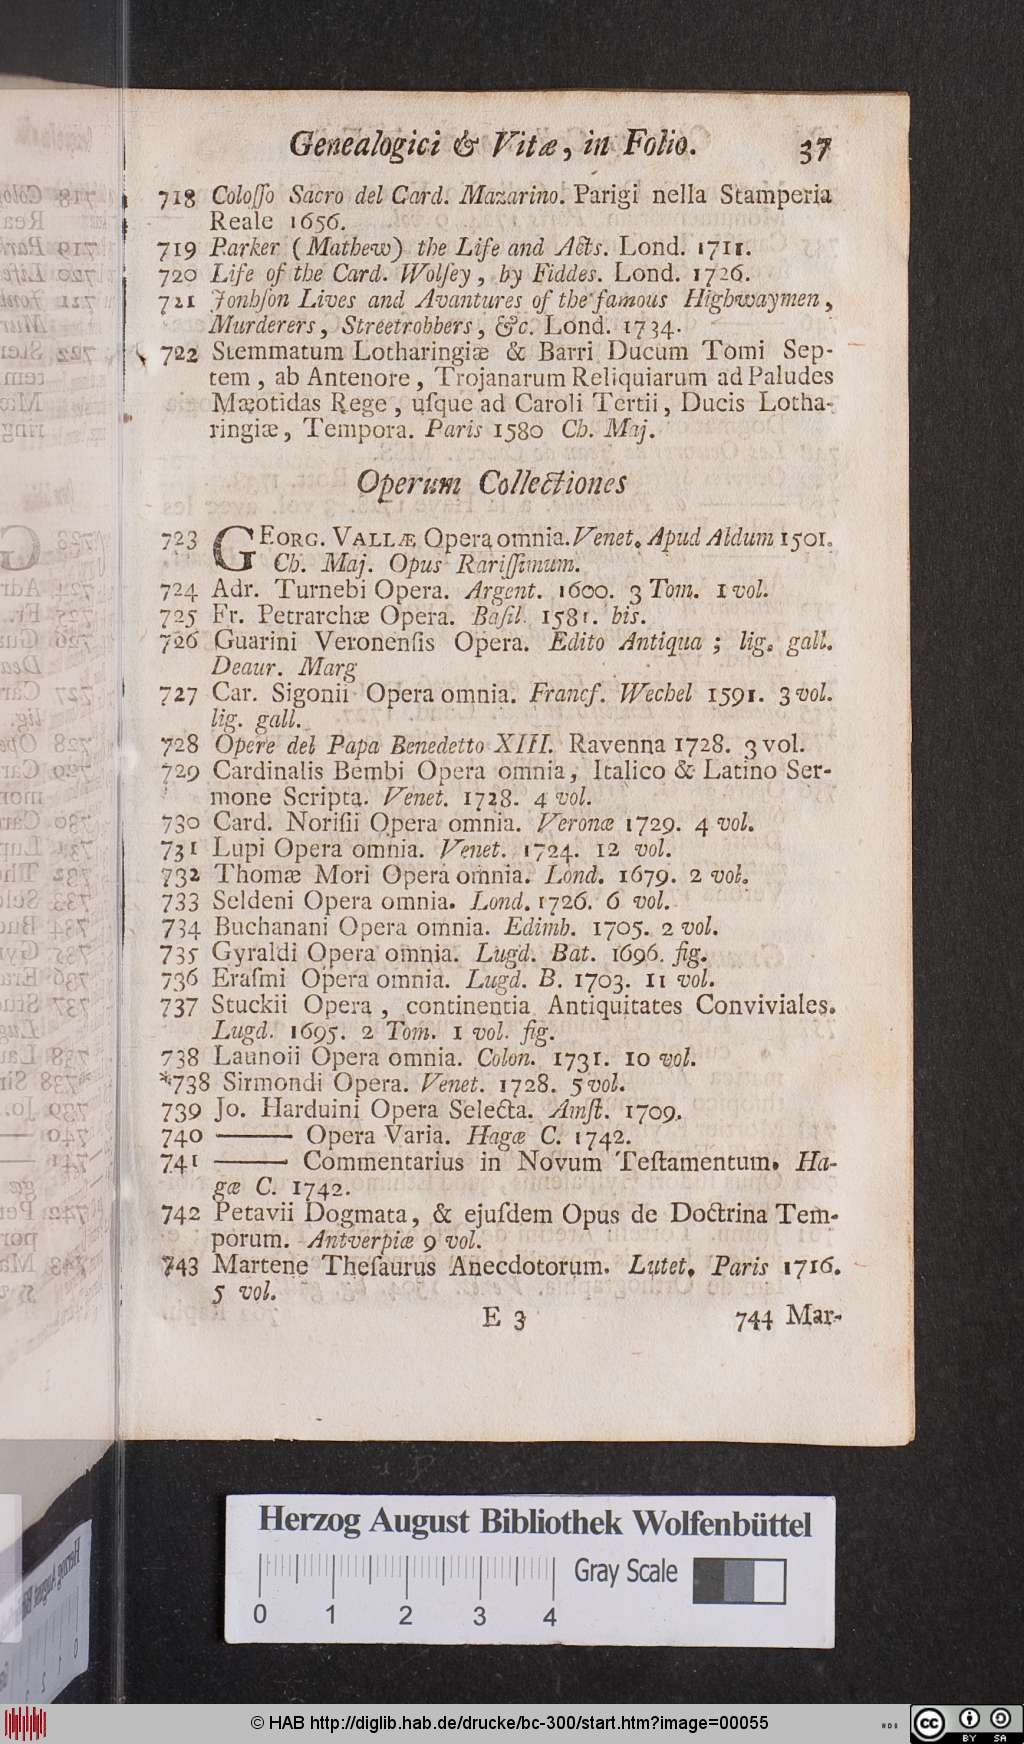 Genealogici & Vitæ, in Folio. 37
718 Coloſſo Sacro del Card. Mazarino. Parigi nella Stamperia
Reale 1656.
719 Parker (Mathew) the Life and Acts. Lond. 1711.
720 Life of the Card. Wolſey, by Fiddes. Lond. 1726.
721 Jonhſon Lives and Avantures of the famous Highwaymen,
Murderers, Streetrobbers, &c. Lond. 1734.
722 Stemmatum Lotharingiæ & Barri Ducum Tomi Sep-
tem, ab Antenore, Trojanarum Reliquiarum ad Paludes
Mæotidas Rege, uſque ad Caroli Tertii, Ducis Lotha-
ringiæ, Tempora. Paris 1580 Ch. Maj.
Operum Collectiones
723 GEORG. VALLÆ Opera omnia. Venet. Apud Aldum 1501.
Ch. Maj. Opus Rariſſimum.
724 Adr. Turnebi Opera. Argent. 1600. 3 Tom. 1 vol.
725 Fr. Petrarchæ Opera. Baſil. 1581. bis.
726 Guarini Veronenſis Opera. Edito Antiqua; lig. gall.
Deaur. Marg
727 Car. Sigonii Opera omnia. Francf. Wechel 1591. 3 vol.
lig. gall.
728 Opere del Papa Benedetto XIII. Ravenna 1728. 3 vol.
729 Cardinalis Bembi Opera omnia, Italico & Latino Ser-
mone Scripta. Venet. 1728. 4 vol.
730 Card. Noriſii Opera omnia. Veronæ 1729. 4 vol.
731 Lupi Opera omnia. Venet. 1724. 12 vol.
732 Thomæ Mori Opera omnia. Lond. 1679. 2 vol.
733 Seldeni Opera omnia. Lond. 1726. 6 vol.
734 Buchanani Opera omnia. Edimb. 1705. 2 vol.
735 Gyraldi Opera omnia. Lugd. Bat. 1696. fig.
736 Eraſmi Opera omnia. Lugd. B. 1703. 11 vol.
737 Stuckii Opera, continentia Antiquitates Conviviales.
Lugd. 1695. 2 Tom. 1 vol. fig.
738 Launoii Opera omnia. Colon. 1731. 10 vol.
*738 Sirmondi Opera. Venet. 1728. 5 vol.
739 Jo. Harduini Opera Selecta. Amſt. 1709.
740 ——— Opera Varia. Hagæ C. 1742.
741 ——— Commentarius in Novum Teſtamentum. Ha-
gæ C. 1742.
742 Petavii Dogmata, & ejuſdem Opus de Doctrina Tem-
porum. Antverpiæ 9 vol.
743 Martene Theſaurus Anecdotorum. Lutet. Paris 1716.
5 vol.
E 3 744 Mar-
Herzog August Bibliothek Wolfenbüttel
Gray Scale
0 1 2 3 4
© HAB http://diglib.hab.de/drucke/bc-300/start.htm?image=00055
cc BY SA